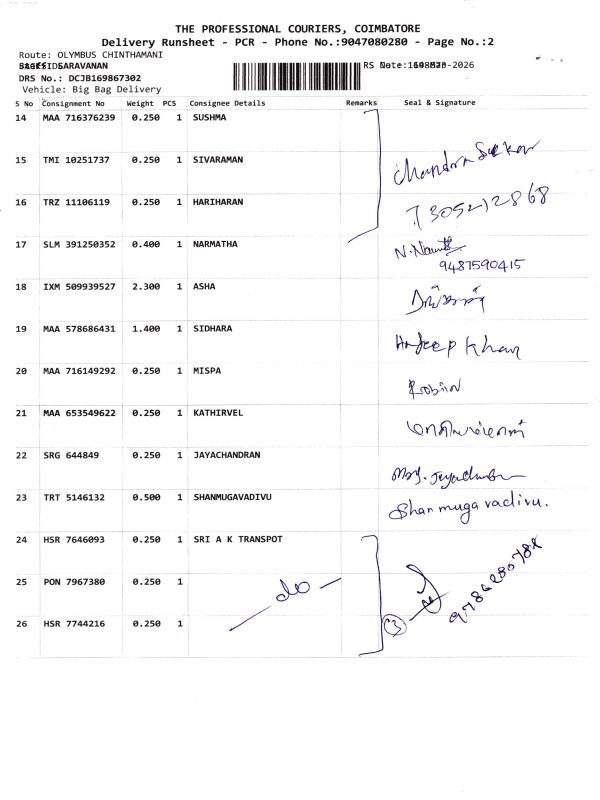 THE PROFESSIONAL COURIERS, COIMBATORE
Delivery Runsheet - PCR - Phone No.:9047080280 - Page No.:2
Route: OLYMBUS CHINTHAMANI
SARAVANAN
DRS No.: DCJB169867302
Vehicle: Big Bag Delivery
S No Consignment No Weight PCS Consignee Details Remarks Seal & Signature
14 MAA 716376239 0.250 1 SUSHMA
15 TMI 10251737 0.250 1 SIVARAMAN
Chandra Sekar
16 TRZ 11106119 0.250 1 HARIHARAN
17 SLM 391250352 0.400 1 NARMATHA
9487590415
18 IXM 509939527 2.300 1 ASHA
19 MAA 578686431 1.400 1 SIDHARA
Khan
20 MAA 716149292 0.250 1 MISPA
Robin
21 MAA 653549622 0.250 1 KATHIRVEL
22 SRG 644849 0.250 1 JAYACHANDRAN
23 TRT 5146132 0.500 1 SHANMUGAVADIVU
Shanmugavadivu.
24 HSR 7646093 0.250 1 SRI A K TRANSPOT
25 PON 7967380 0.250 1
do
26 HSR 7744216 0.250 1
3